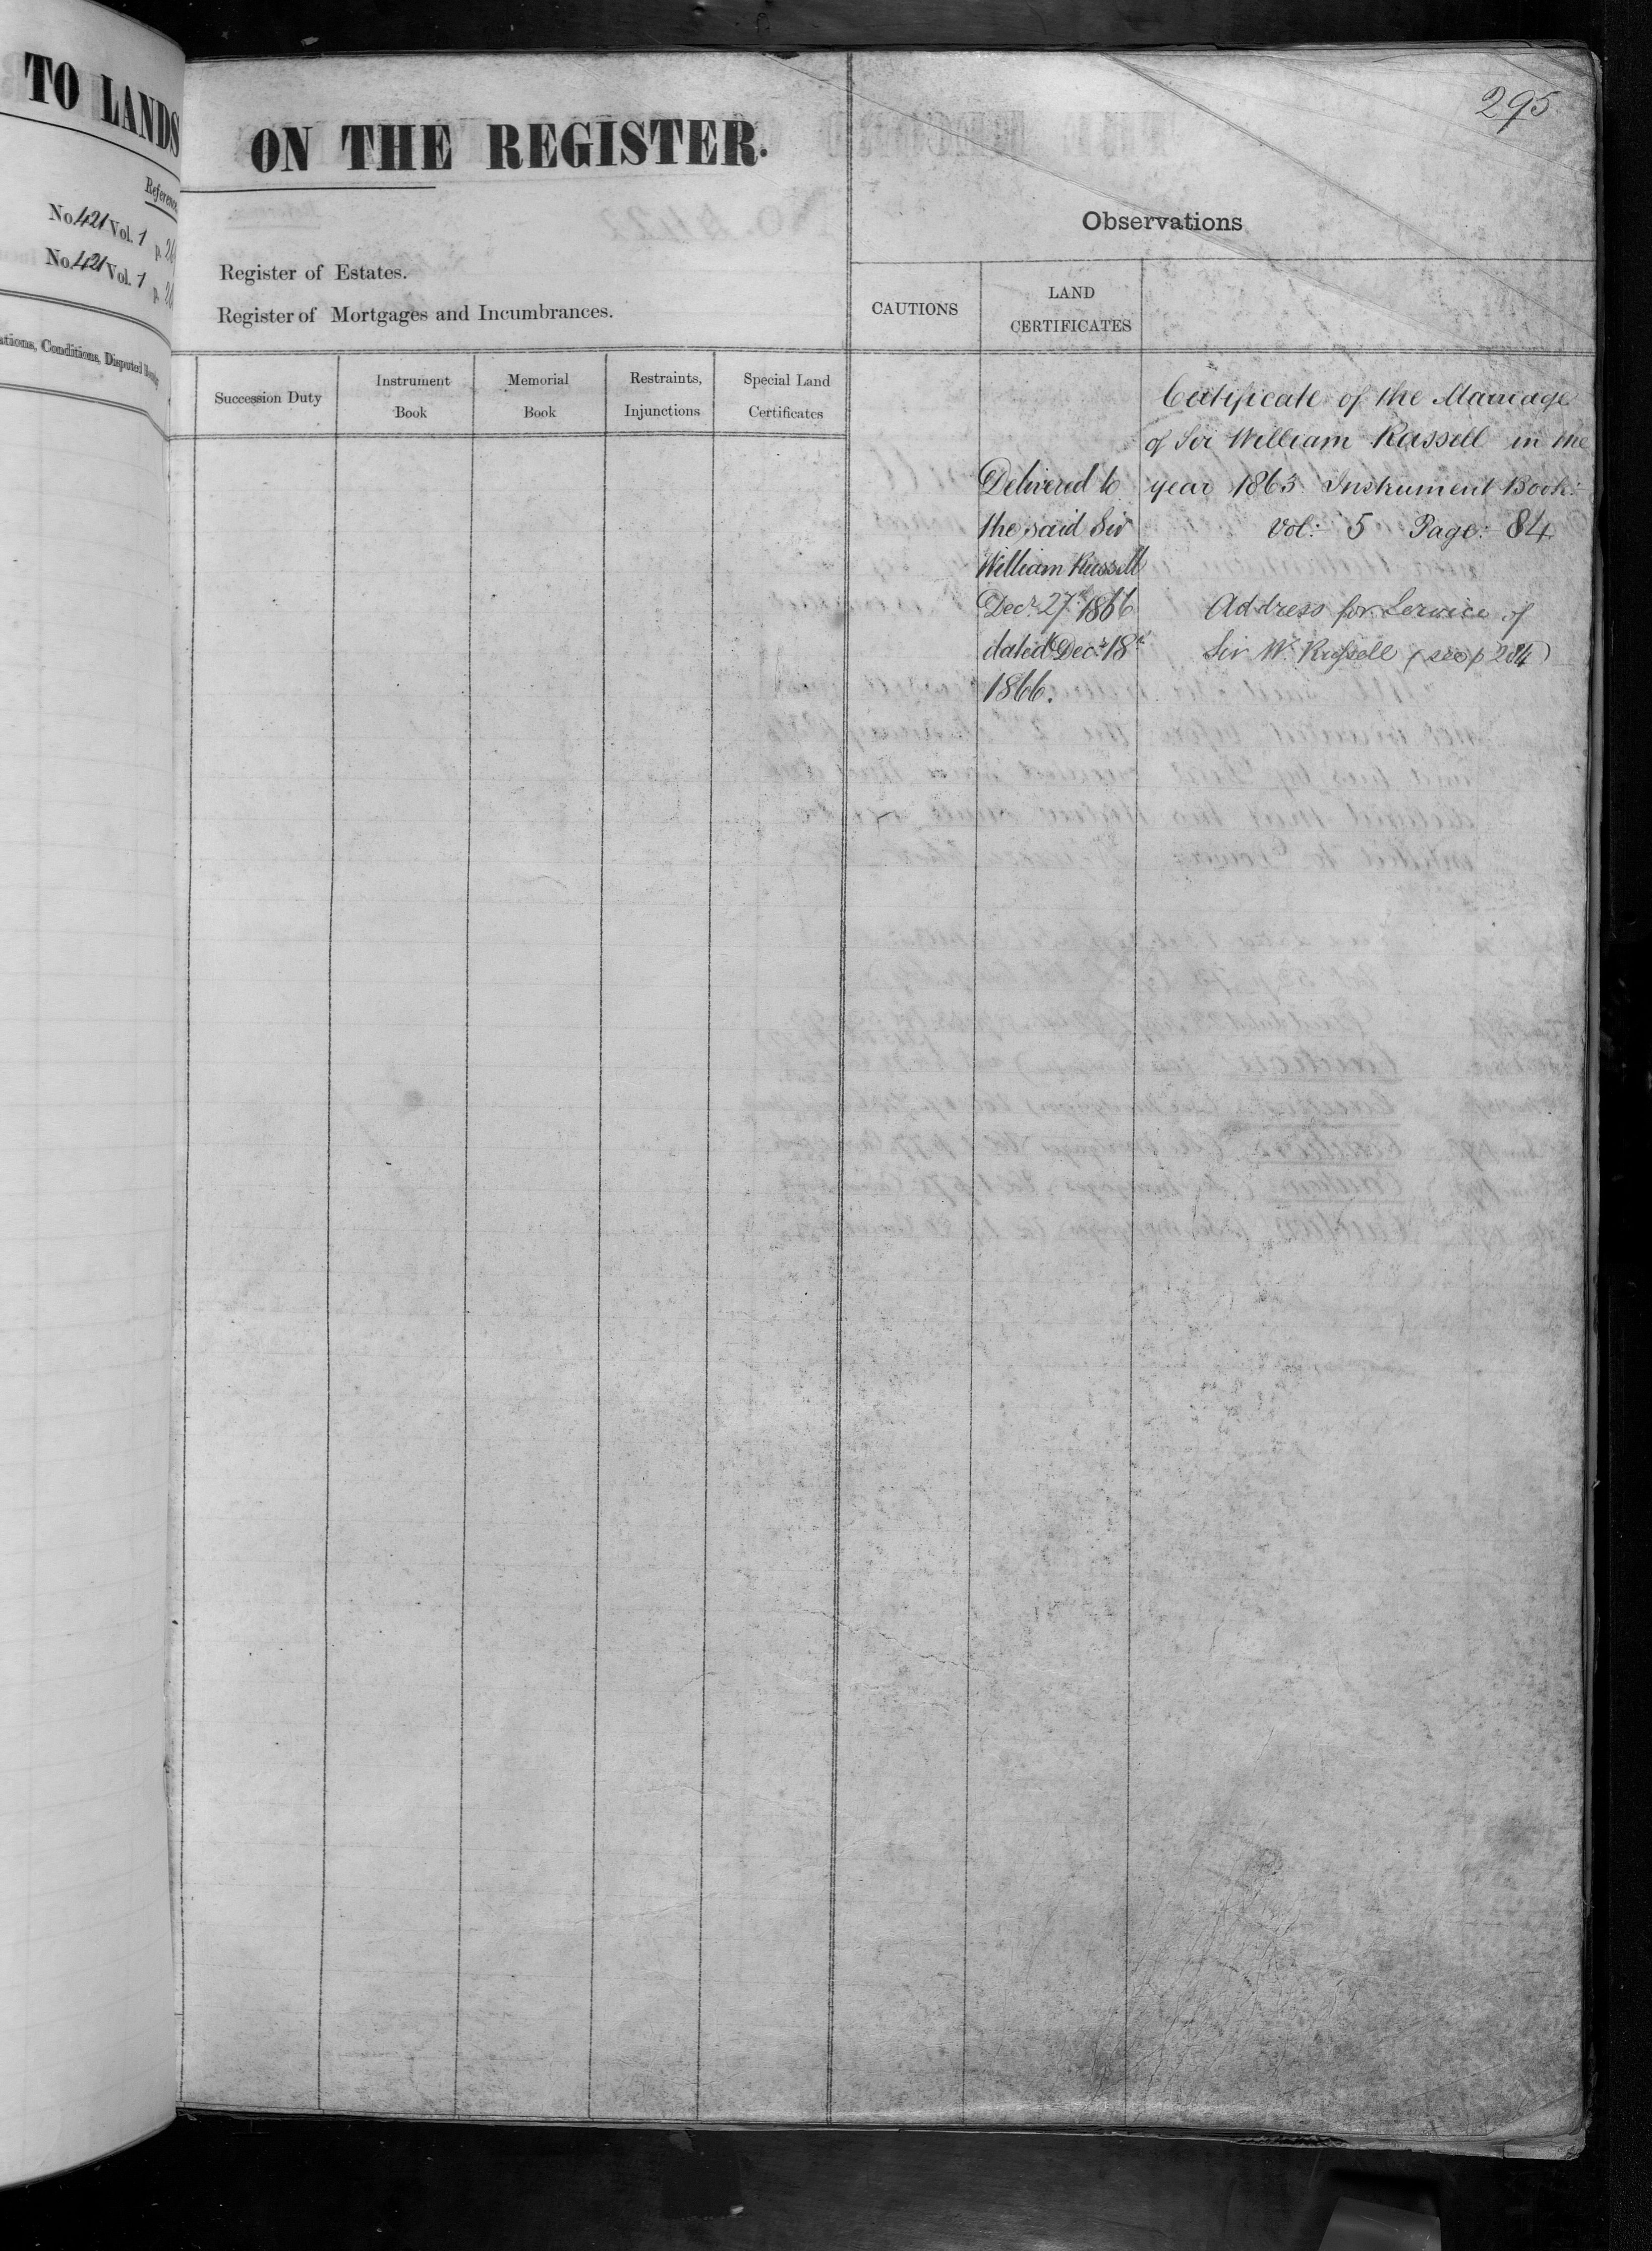 TO LANDS
Reference
No. 421 Vol. 1 p.
No. 421 Vol. 1 p.
Conditions, Disputed
295
ON THE REGISTER.
Register of Estates.
Register of Mortgages and Incumbrances.
Succession Duty
Instrument
Book
Memorial
Book
Restraints,
Injunctions
Special Land
Certificates
Observations
CAUTIONS
LAND
CERTIFICATES
Delivered to
the said Sir
William Russell
Decr. 27th 1866
dated Decr. 18th
1866.
Certificate of the Marriage
of Sir William Russell in the
year 1863 Instrument Book:
Vol: 5 Page: 84
Address for Service of
Sir Wm. Russell (see p 284)